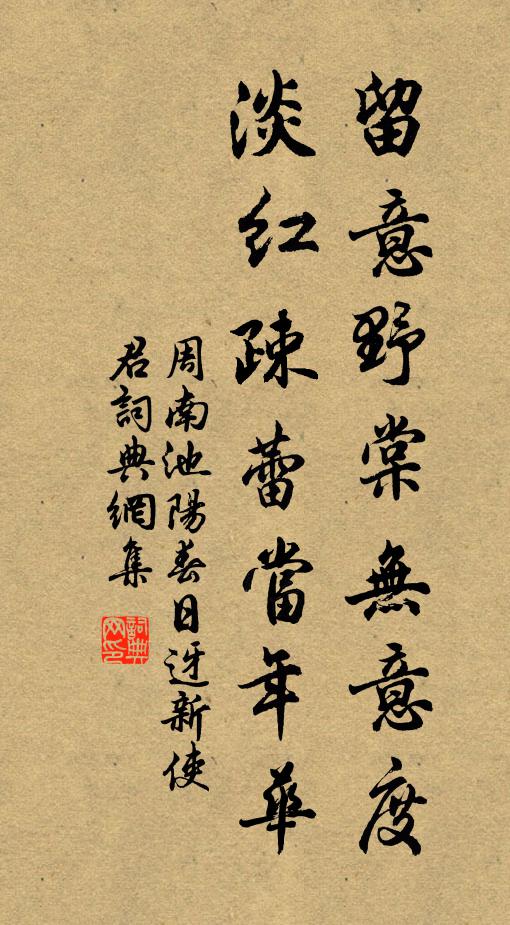 留意野棠無意度
淡紅疎蕾當年華
周南池陽春日迓新使
君詞典網集
詞典网印